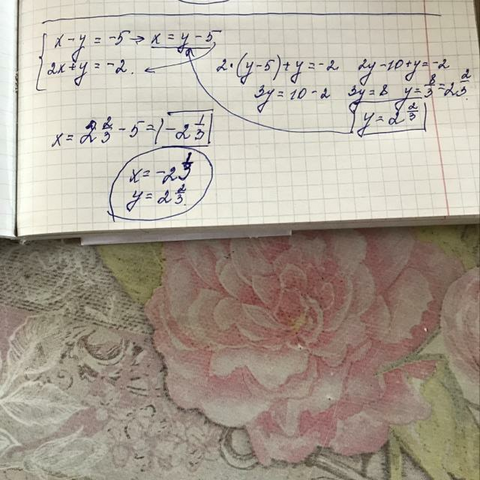 x - y = -5 → x = y - 5
2x + y = -2.
2·(y-5)+y = -2 2y - 10 + y = -2
3y = 10 - 2 3y = 8 y = 8/3 = 2 2/3
y = 2 2/3
x = 2 2/3 - 5 = -2 1/3
x = -2 1/3
y = 2 2/3